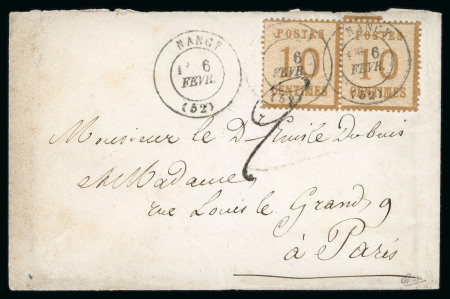 POSTES
10
CENTIMES
POSTES
10
CENTIMES
NANCY
6
FEVR.
(52)
NANCY
6
FEVR.
(52)
Monsieur le Dr Emile Dubois
et Madame,
rue Louis le Grand, 9
à Paris